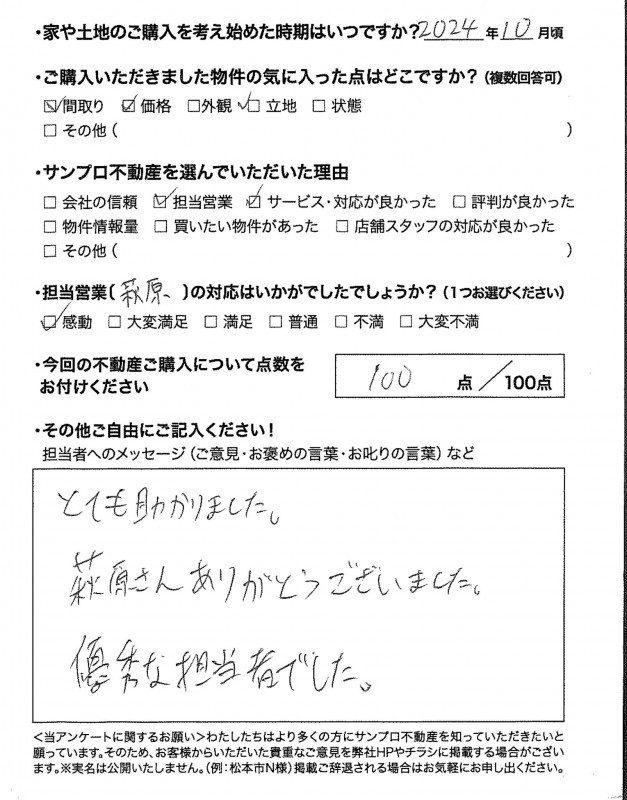 ・家や土地のご購入を考え始めた時期はいつですか？2024年10月頃
・ご購入いただきました物件の気に入った点はどこですか？（複数回答可）
☑間取り ☑価格 □外観 ☑立地 □状態
□その他（ ）
・サンプロ不動産を選んでいただいた理由
□会社の信頼 ☑担当営業 ☑サービス・対応が良かった □評判が良かった
□物件情報量 □買いたい物件があった □店舗スタッフの対応が良かった
□その他（ ）
・担当営業（萩原）の対応はいかがでしたでしょうか？（1つお選びください）
☑感動 □大変満足 □満足 □普通 □不満 □大変不満
・今回の不動産ご購入について点数を
お付けください
100 点／100点
・その他ご自由にご記入ください！
担当者へのメッセージ（ご意見・お褒めの言葉・お叱りの言葉）など
とても助かりました。
萩原さんありがとうございました。
優秀な担当者でした。
＜当アンケートに関するお願い＞わたしたちはより多くの方にサンプロ不動産を知っていただきたいと
願っています。そのため、お客様からいただいた貴重なご意見を弊社HPやチラシに掲載する場合がござい
ます。※実名は公開いたしません。（例：松本市N様）掲載ご辞退される場合はお気軽にお申し出ください。